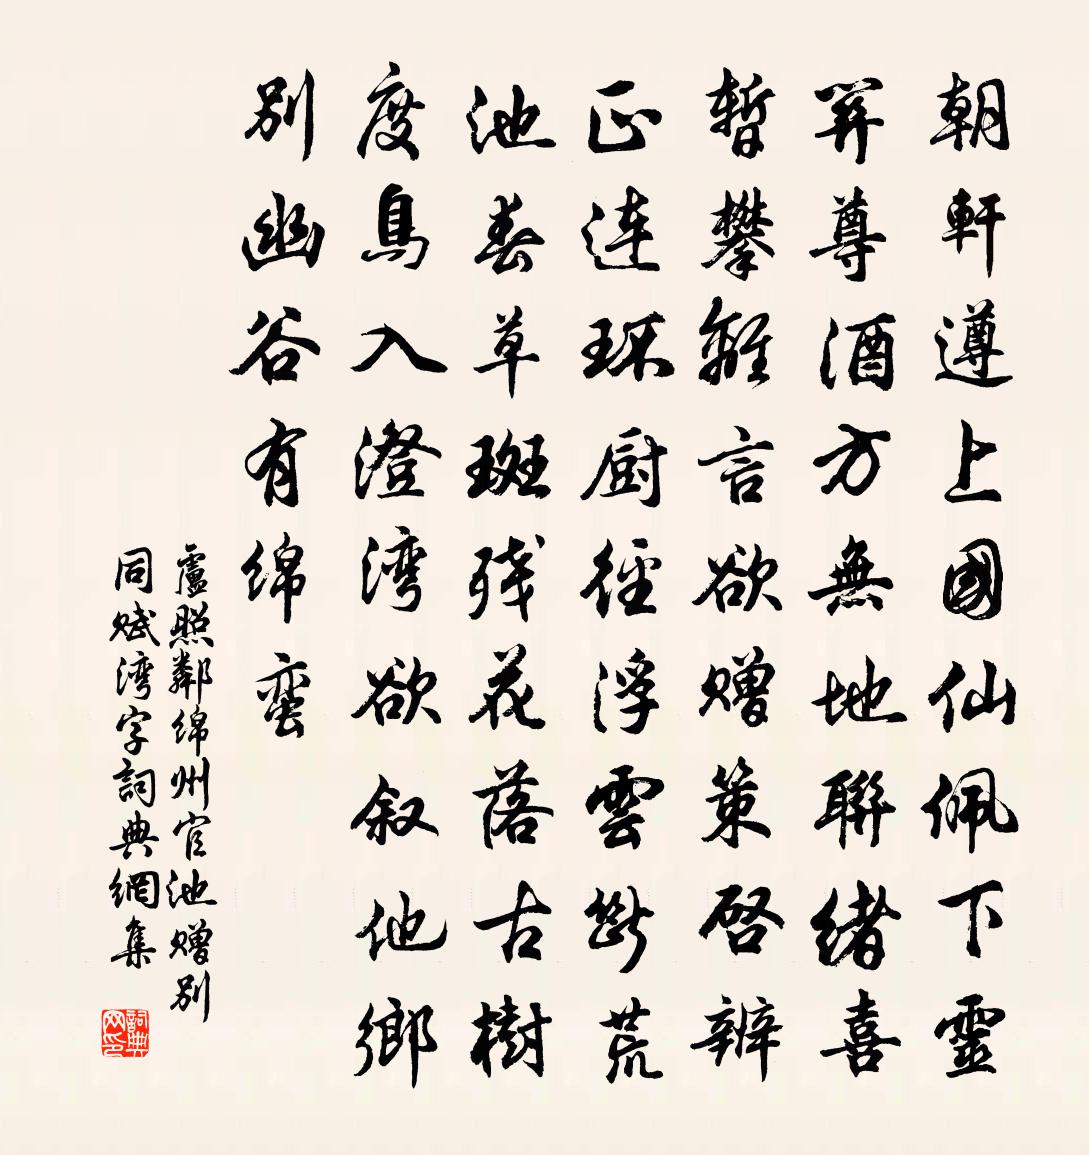 朝軒遵上國仙佩下靈
關尊酒方無地聯緒喜
暫攀離言欲贈策啓辨
正連環厨徑浮雲斷荒
池春草斑残花落古樹
度鳥入澄湾欲叙他鄉
別幽谷有綿蛮
盧照鄰綿州官池贈別
同賦湾字詞典網集
詞典
网印